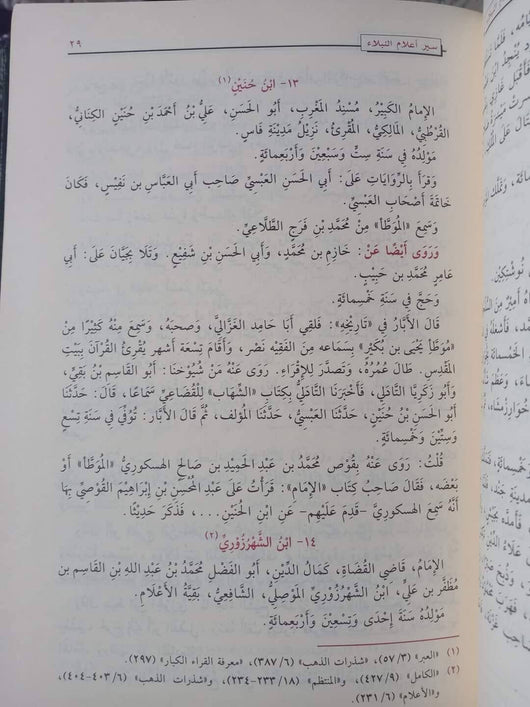 سير أعلام النبلاء
٢٩
١٣- ابْنُ حُنَيْنٍ (١)
الإِمَامُ الكَبِيْرُ، مُسْنِدُ المَغْرِبِ، أَبُو الحَسَنِ، عَلِيُّ بْنُ أَحْمَدَ بْنِ حُنَيْنٍ الكِنَانِيُّ،
القُرْطُبِيُّ، المَالِكِيُّ، المُقْرِئُ، نَزِيْلُ مَدِيْنَةِ فَاسٍ.
مَوْلِدُهُ فِي سَنَةِ سِتٍّ وَسَبْعِيْنَ وَأَرْبَعِمائَةٍ.
وَقَرَأَ بِالرِّوَايَاتِ عَلَى: أَبِي الحَسَنِ العَبْسِيِّ صَاحِبِ أَبِي العَبَّاسِ بنِ نَفِيْسٍ، فَكَانَ
خَاتَمَةَ أَصْحَابِ العَبْسِيِّ.
وَسَمِعَ «المُوَطَّأَ» مِنْ مُحَمَّدِ بنِ فَرَجٍ الطَّلَّاعِيِّ.
وَرَوَى أَيْضًا عَنْ: خَازِمِ بنِ مُحَمَّدٍ، وَأَبِي الحَسَنِ بنِ شَفِيْعٍ. وَتَلَا بِجَيَّانَ عَلَى: أَبِي
عَامِرٍ مُحَمَّدِ بنِ حَبِيْبٍ.
وَحَجَّ فِي سَنَةِ خَمْسِمائَةٍ.
قَالَ الأَبَّارُ فِي «تَارِيْخِهِ»: فَلَقِيَ أَبَا حَامِدٍ الغَزَّالِيَّ، وَصَحِبَهُ، وَسَمِعَ مِنْهُ كَثِيْرًا مِنْ
«مُوَطَّأ يَحْيَى بن بُكَيْرٍ» بِسَمَاعِهِ مِنَ الفَقِيْهِ نَصْرٍ، وَأَقَامَ تِسْعَةَ أَشهرٍ يُقْرِئُ القُرْآنَ بِبَيْتِ
المَقْدِسِ. طَالَ عُمُرُهُ، وَتَصَدَّرَ لِلإِقْرَاءِ. رَوَى عَنْهُ مَنْ شُيُوْخنَا: أَبُو القَاسِمِ بْنُ بَقِيٍّ،
وَأَبُو زَكَرِيَّا التَّادَلِي، فَأَخْبَرَنَا التَّادَلِيُّ بِكِتَابِ «الشِّهَابِ» لِلْقُضَاعِي سَمَاعًا، قَالَ: حَدَّثَنَا
أَبُو الحَسَنِ بْنُ حُنَيْنٍ، حَدَّثَنَا العَبْسِيُّ، حَدَّثَنَا المُؤلف، ثُمَّ قَالَ الأَبَّار: تُوُفِّيَ فِي سَنَةِ تِسْعٍ
وَسِتِّيْنَ وَخَمْسِمائَةٍ.
قُلْتُ: رَوَى عَنْهُ بِقُوْصَ مُحَمَّدُ بن عَبْدِ الحَمِيْدِ بن صَالِحٍ الهسكورِيُّ «المُوَطَّأ» أَوْ
بَعْضَه، فَقَالَ صَاحِبُ كِتَابِ «الإِمَامِ»: قَرَأْتُ عَلَى عَبْدِ المُحْسِنِ بنِ إِبْرَاهِيْمَ القُوْصِيِّ بِهَا
أَنَّهُ سَمِعَ الهسكورِيَّ -قَدِمَ عَلَيْهِم- عَنِ ابْنِ الحُنَيْنِ...، فَذَكَرَ حَدِيْثًا.
١٤- ابْنُ الشَّهْرُزُوْرِيِّ (٢)
الإِمَامُ، قَاضِي القُضَاةِ، كَمَالُ الدِّيْنِ، أَبُو الفَضْلِ مُحَمَّدُ بْنُ عَبْدِ اللهِ بنِ القَاسِمِ بنِ
مُظَفَّرِ بنِ عَلِيٍّ، ابْنُ الشَّهْرُزُوْرِيِّ المَوْصِلِيُّ، الشَّافِعِيُّ، بَقِيَّةُ الأَعْلَامِ.
مَوْلِدُهُ سَنَةَ إِحْدَى وَتِسْعِيْنَ وَأَرْبَعِمائَةٍ.
(١) «العبر» (٥٧/٣)، و«شذرات الذهب» (٣٨٧/٦)، «معرفة القراء الكبار» (٢٩٧).
(٢) «الكامل» (٤٢٧/٩)، و«المنتظم» (٢٣٣/١٨-٢٣٤)، و«شذرات الذهب» (٤٠٣/٦-٤٠٤)،
و«الأعلام» (٢٣١/٦).